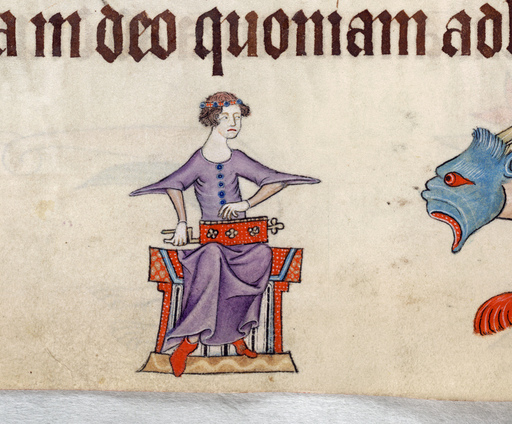 a in deo quoniam adh